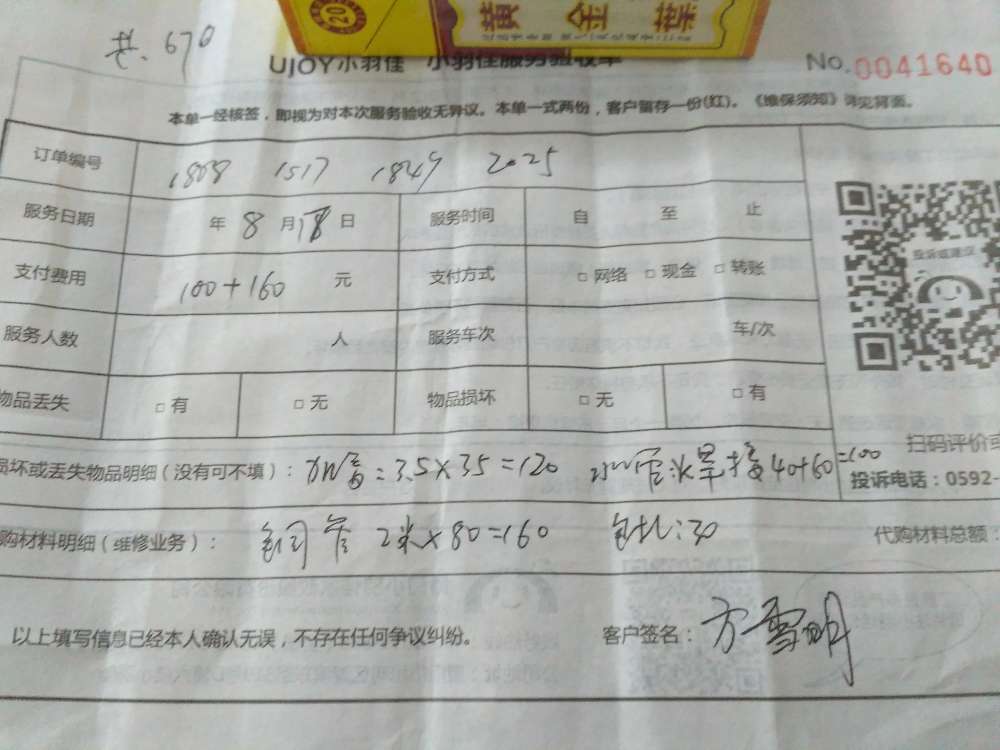 黄金葉
共:670
UJOY小羽佳 小羽佳服务验收单
No.0041640
本单一经核签，即视为对本次服务验收无异议。本单一式两份，客户留存一份(红)。《维保须知》详见背面。
订单编号 1808 1517 1849 2025
服务日期 年 8 月 18 日 服务时间 自 至 止
支付费用 100+160 元 支付方式 □ 网络 □ 现金 □ 转账
投诉或建议
服务人数 人 服务车次 车/次
物品丢失 □ 有 □ 无 物品损坏 □ 无 □ 有
扫码评价或
损坏或丢失物品明细（没有可不填）： 3.5×35=120 焊接40+60=100
投诉电话：0592-
购材料明细（维修业务）： 铜管 2米×80=160 :30 代购材料总额：
以上填写信息已经本人确认无误，不存在任何争议纠纷。 客户签名： 方雪明